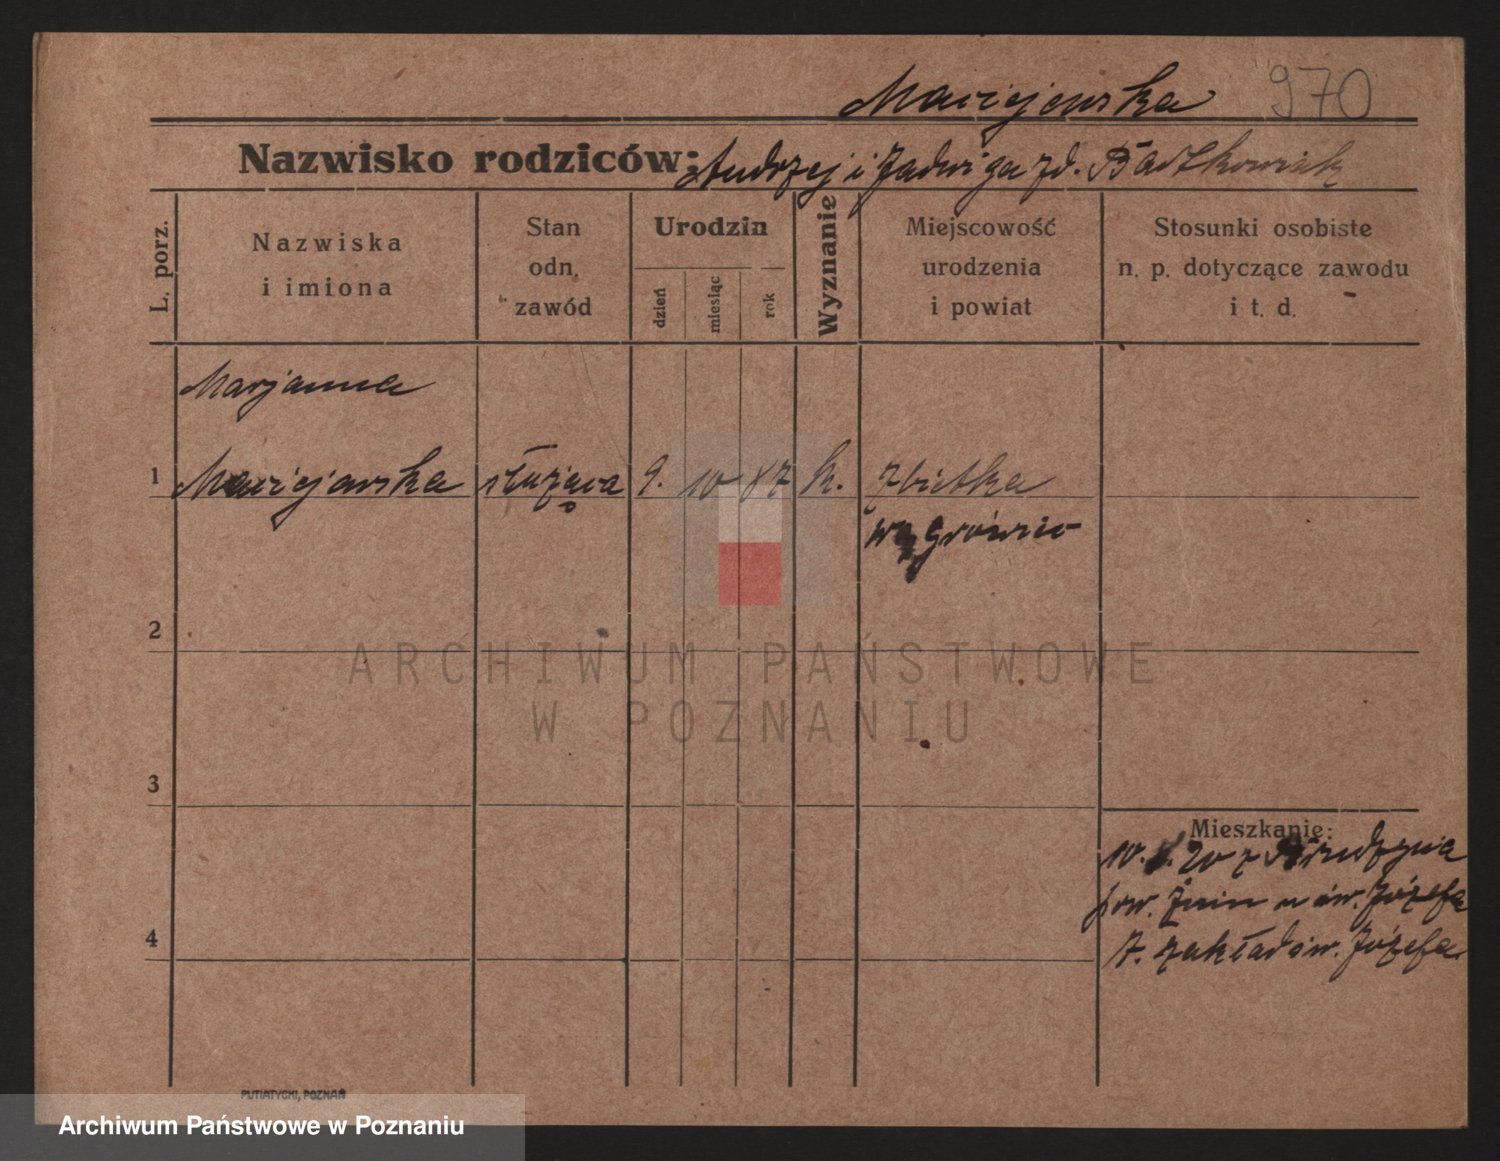 Maciejewska 970
Nazwisko rodziców: Andrzej i Jadwiga zd. Bartkowiak
L. porz.
Nazwiska
i imiona
Stan
odn.
zawód
Urodzin
dzień
miesiąc
rok
Wyznanie
Miejscowość
urodzenia
i powiat
Stosunki osobiste
n. p. dotyczące zawodu
i t. d.
Marjanna
1 Maciejewska służąca 9. 10 87 k. Zbietka
Wągrówiec
2
ARCHIWUM PAŃSTWOWE
W POZNANIU
3
Mieszkanie:
10. 20 z
pow. Żnin św. Józefa
4
7. zakład św. Józefa
PUTIATYCKI, POZNAŃ
Archiwum Państwowe w Poznaniu